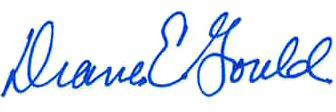 Diane E. Gould